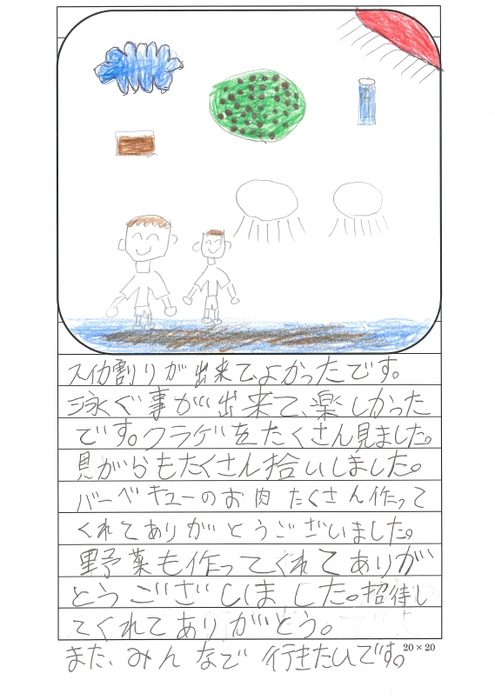 スイカ割りが出来てよかったです。
泳ぐ事が出来て、楽しかった
です。クラゲをたくさん見ました。
貝がらもたくさん拾いしました。
バーベキューのお肉たくさん作って
くれてありがとうございました。
野菜も作ってくれてありが
とうございました。招待し
てくれてありがとう。
また、みんなで行きたいです。
20×20